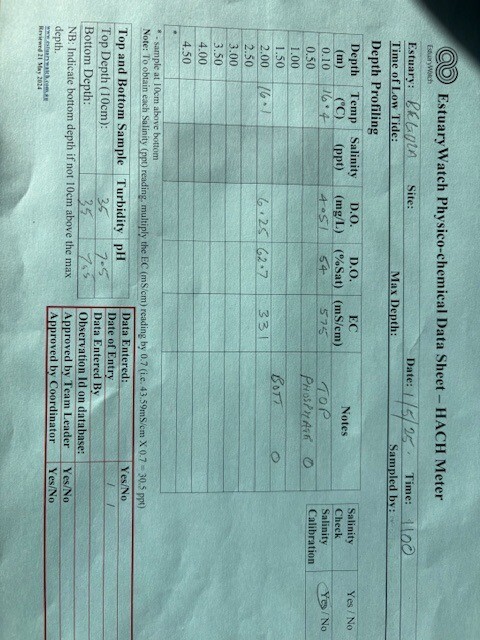 EstuaryWatch
EstuaryWatch Physico-chemical Data Sheet – HACH Meter
Estuary: Site: Date: 1/5/25. Time: 1100
Time of Low Tide: Max Depth: Sampled by:
Depth Profiling
Depth (m) Temp (°C) Salinity (ppt) D.O. (mg/L) D.O. (%Sat) EC (mS/cm) Notes
0.10 16.4 4.51 54 575 TOP
0.50 PHOSPHATE 0
1.00
1.50 BOTT 0
2.00 16.1 6.25 62.7 331
2.50
3.00
3.50
4.00
4.50
*
* - sample at 10cm above bottom
Note: To obtain each Salinity (ppt) reading, multiply the EC (mS/cm) reading by 0.7 (i.e. 43.59mS/cm X 0.7 = 30.5 ppt)
Salinity Check Yes / No
Salinity Calibration Yes / No
Top and Bottom Sample Turbidity pH
Top Depth (10cm): 35 7.5
Bottom Depth: 35 7.5
NB: Indicate bottom depth if not 10cm above the max
depth.
www.estuarywatch.com.au
Reviewed 21 May 2024
Data Entered: Yes/No
Date of Entry / /
Data Entered By
Observation Id on database:
Approved by Team Leader Yes/No
Approved by Coordinator Yes/No